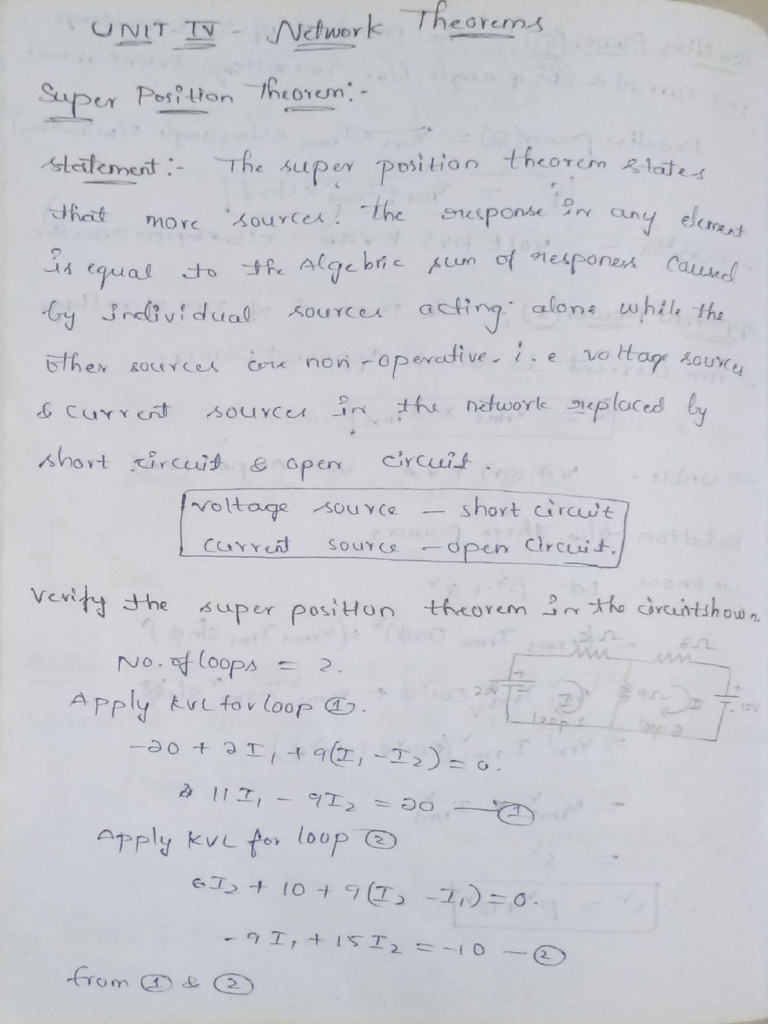 UNIT IV - Network Theorems
Super Position Theorem:-
Statement:- The super position theorem states
that more sources. the response in any element
is equal to the Algebric sum of responses caused
by individual sources acting alone while the
other sources are non-operative. i.e voltage sources
& current sources in the network replaced by
short circuit & open circuit.
voltage source - short circuit
current source - open circuit.
Verify the super position theorem in the circuit shown.
2Ω 6Ω
20V I 9Ω II 10V
loop 1 loop 2
No. of loops = 2.
Apply KVL for loop ①.
-20 + 2I₁ + 9(I₁ - I₂) = 0.
11I₁ - 9I₂ = 20 — ①
Apply KVL for loop ②
6I₂ + 10 + 9(I₂ - I₁) = 0.
-9I₁ + 15I₂ = -10 — ②
from ① & ②